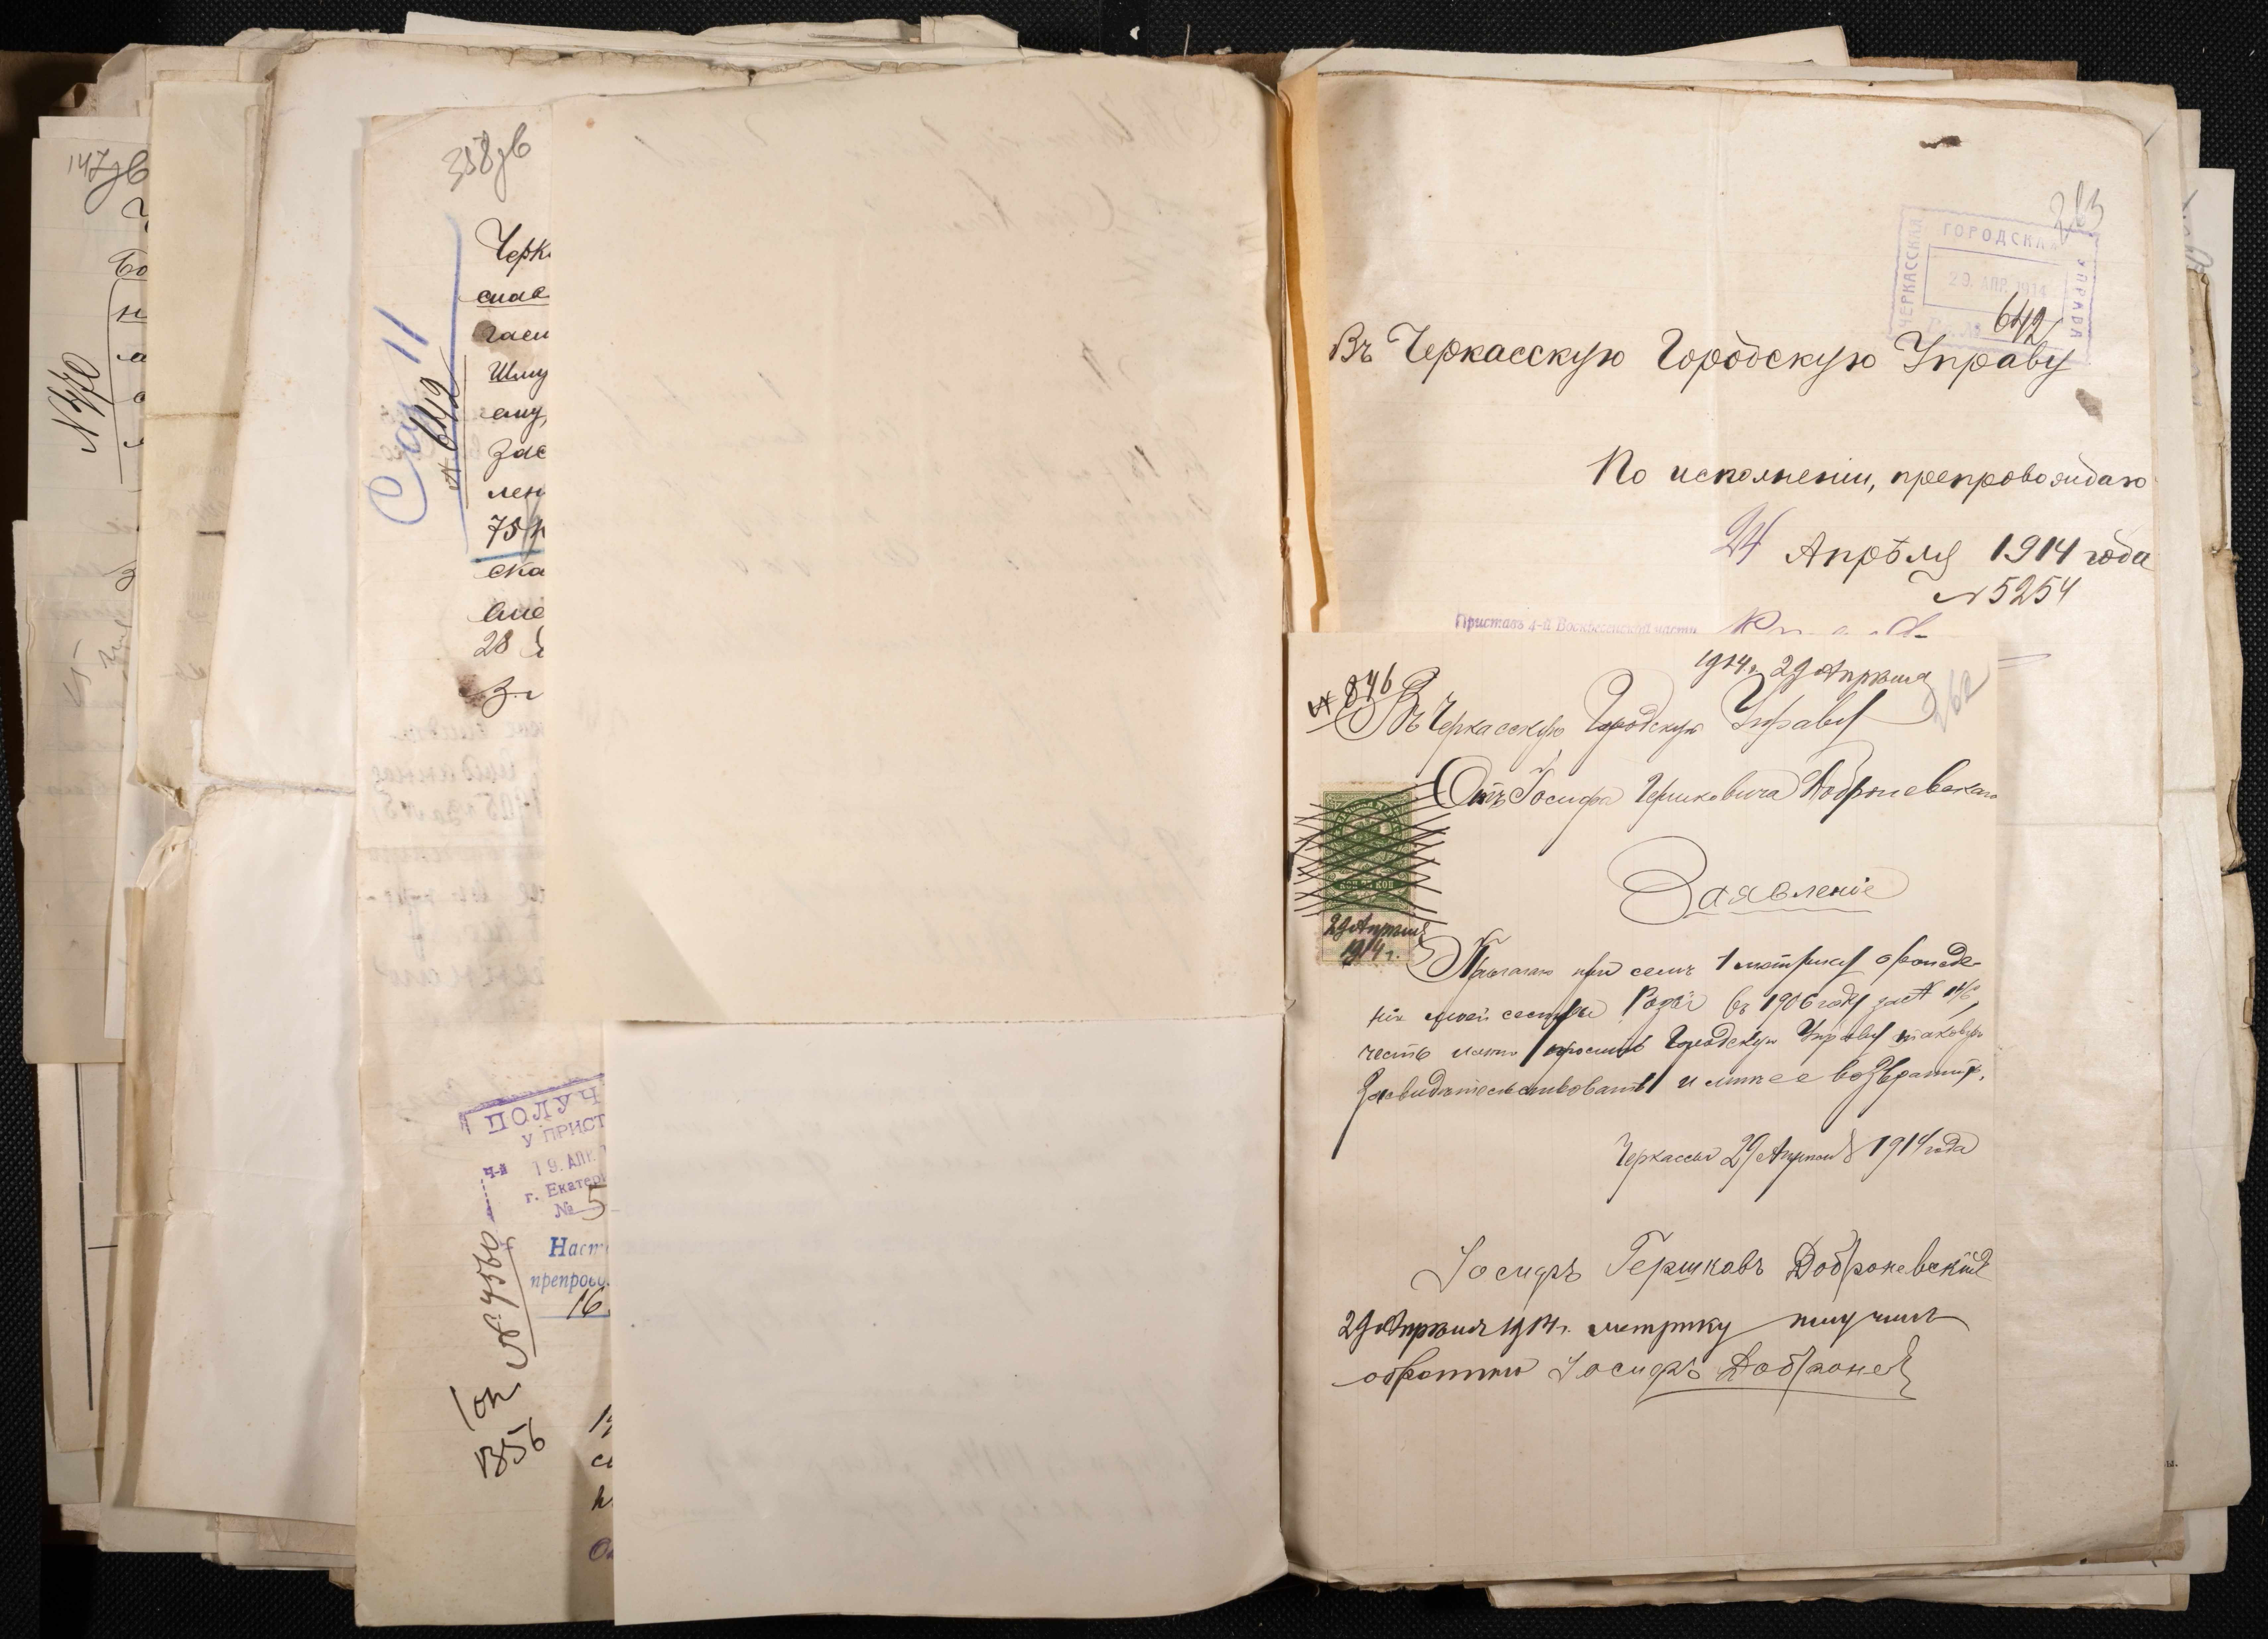 147зв
№ 770
358зв
Черк
снав
Шму
ему,
зас
лен
75 р
ска
28
С 11
№ 642
ПОЛУЧ
У ПРИСТ
4-й 19. АПР.
г. Екатер
№ 5
Наст
препрово
16
№ 4560
1356
263
ЧЕРКАССКАЯ ГОРОДСКАЯ УПРАВА
29. АПР. 1914
642
Въ Черкасскую Городскую Управу
По исполненіи, препровождаю
24 Апрѣля 1914 года
№ 5254
Приставъ 4-й Воскресенской части
1914 г. 29 Апрѣля
262
№ 846
Въ Черкасскую Городскую Управу
Отъ Іосифа Гершковича Доброневскаго
Заявленіе
КОП КОП
29 Апрѣля
1914 г.
Прилагаю при семъ 1 метрику о рожде-
ніи моей сестры въ 1906 году за №
честь имѣю просить Городскую Управу таковую
Засвидѣтельствовать и мнѣ ее возвратить.
Черкассы 29 Апрѣля 1914 года
Іосифъ Гершковъ Доброневскій
29 Апрѣля 1914 г. метрику получилъ
обратно Іосифъ Доброневс